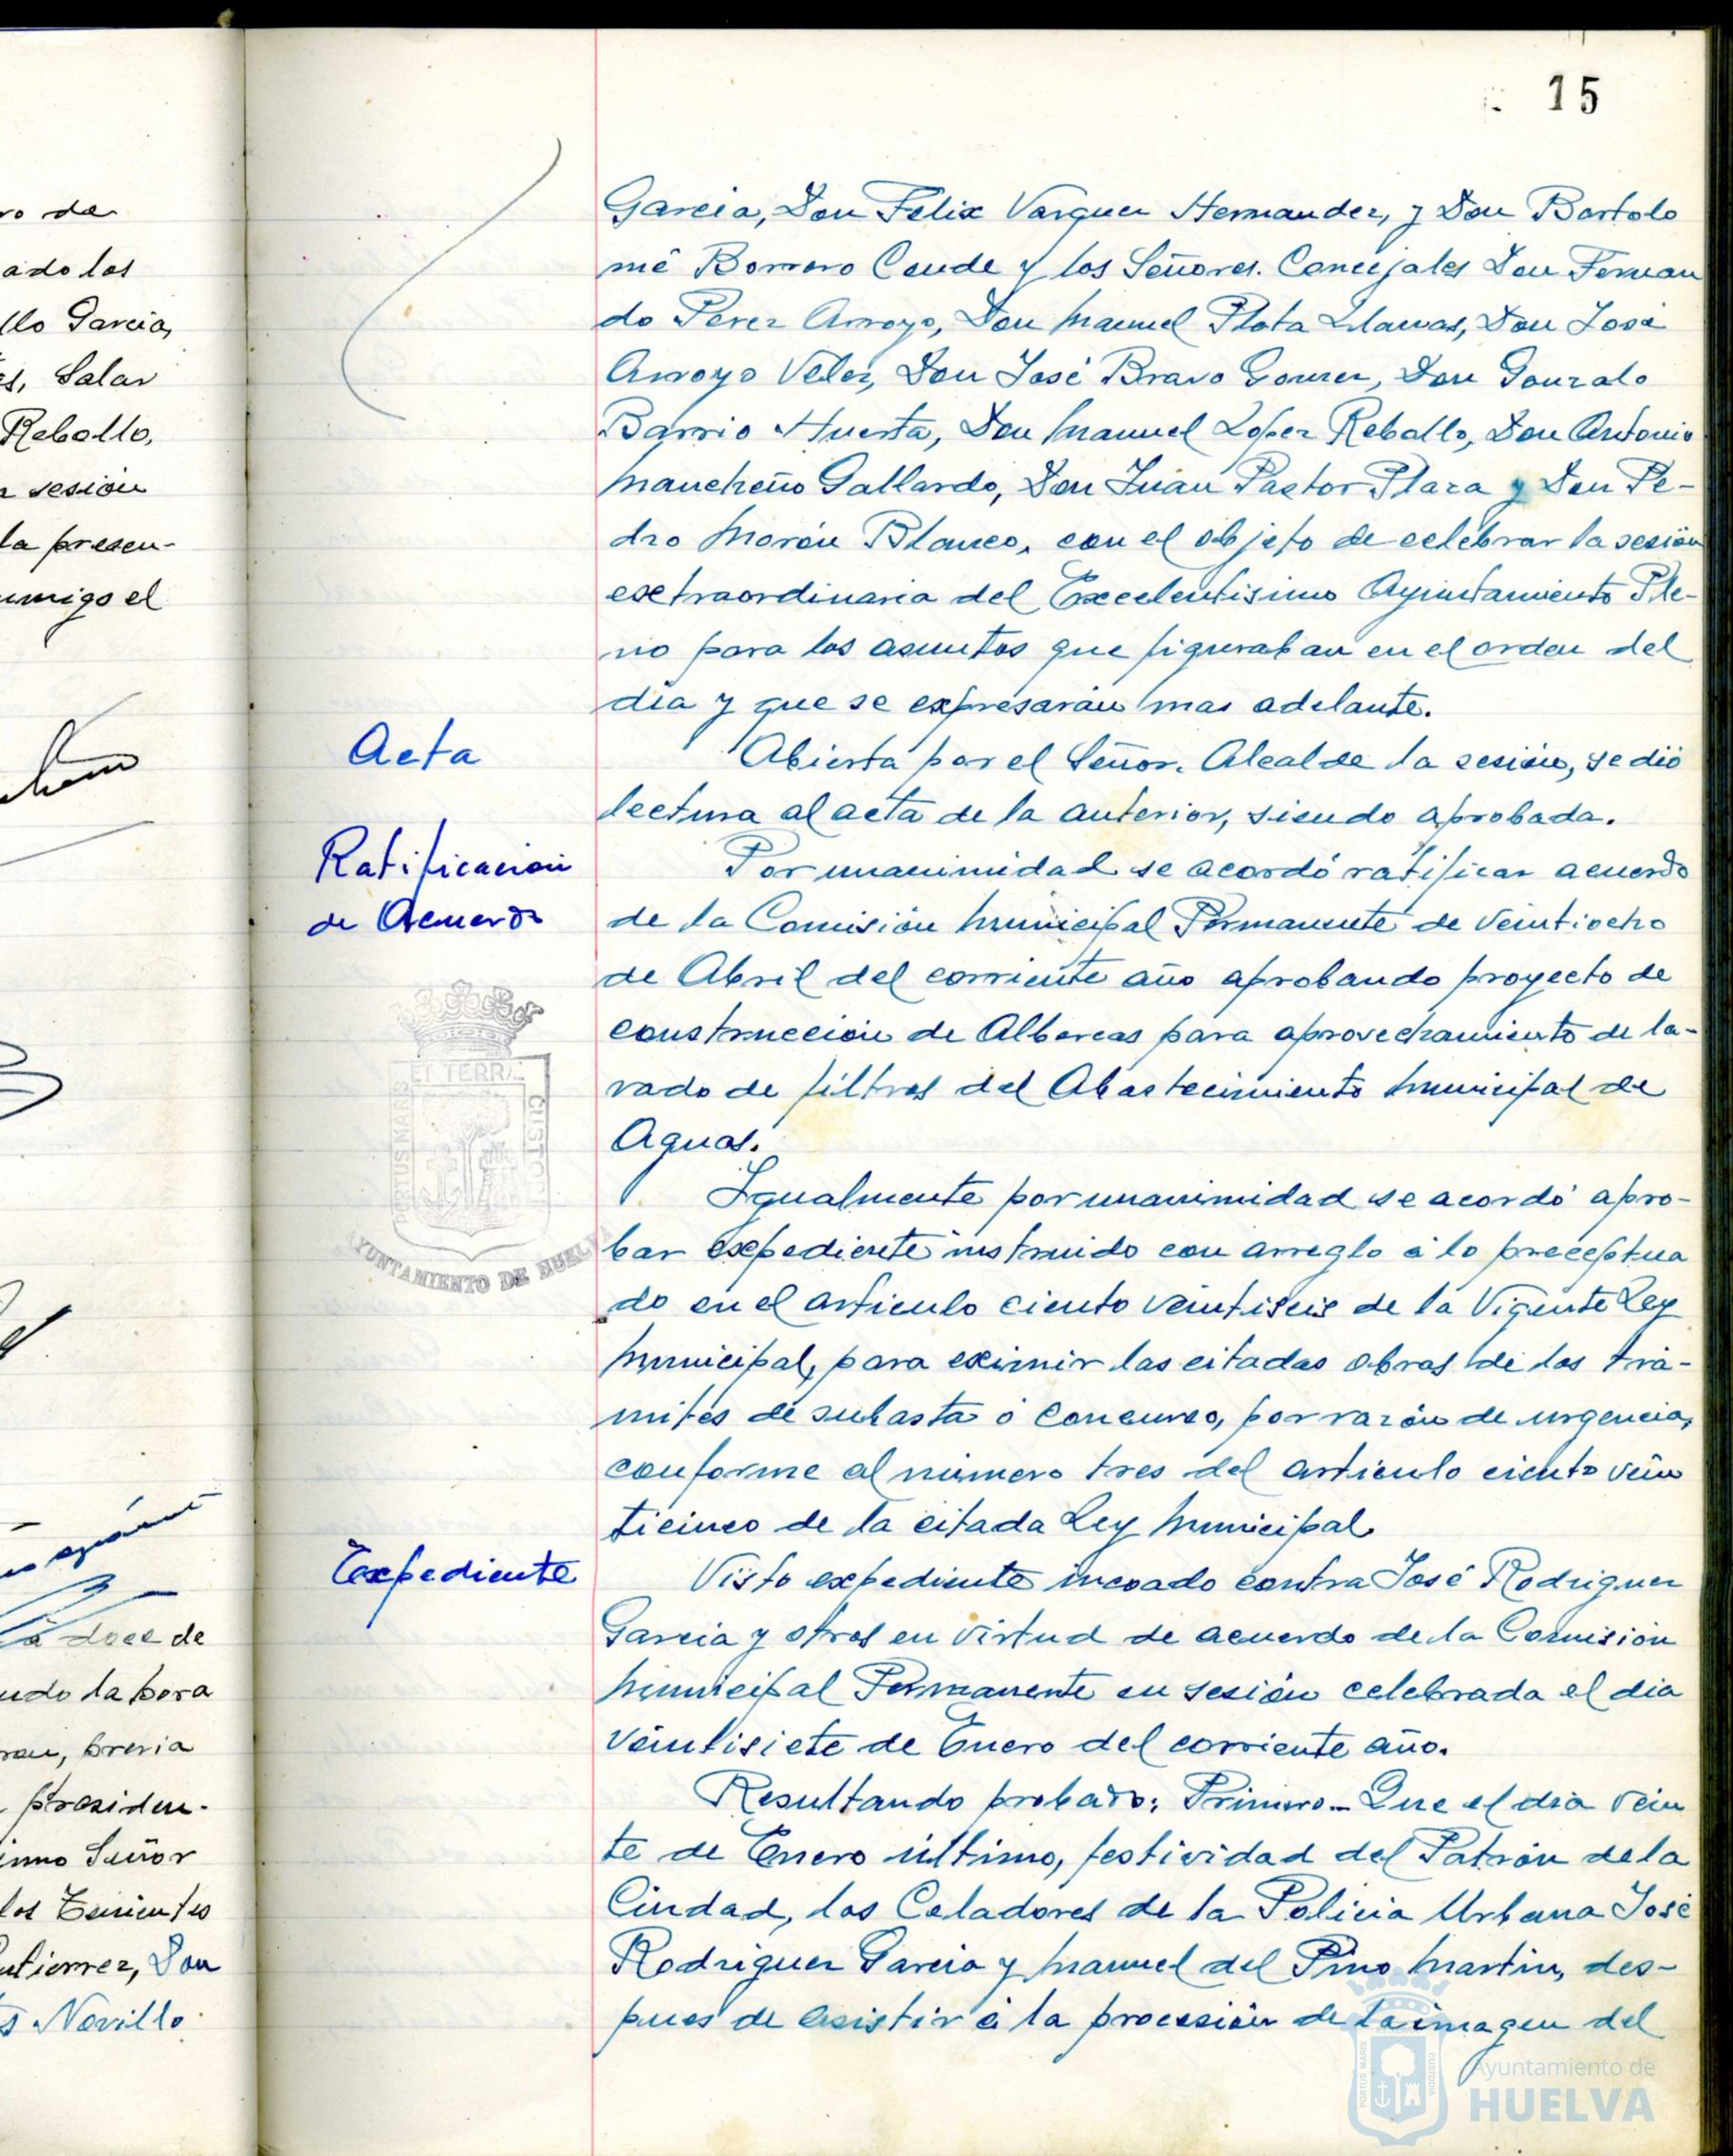 ro de
ado los
llo Garcia,
es, Salar
Rebollo,
a sesión
la presen-
umigo el
a doce de
ndo la hora
ran, previa
presiden-
imo Señor
los Tenientes
utierrez, Don
s Novillo
15
Garcia, Don Felix Vazquez Hernandez, y Don Bartolo
mé Borrero Conde y los Señores. Concejales Don Fernan
do Perez Arroyo, Don Manuel Plata Llamas, Don José
Arroyo Velez, Don José Bravo Gomez, Don Gonzalo
Barrio Huerta, Don Manuel Lopez Rebollo, Don Antonio
Mancheño Gallardo, Don Juan Pastor Plaza y Don Pe-
dro Morón Blanco, con el objeto de celebrar la sesión
extraordinaria del Excelentisimo Ayuntamiento Ple-
no para los asuntos que figuraban en el orden del
dia y que se expresarán mas adelante.
Acta
Abierta por el Señor. Alcalde la sesión, se dió
lectura al acta de la anterior, siendo aprobada.
Ratificación
de Acuerdo
Por unanimidad se acordó ratificar acuerdo
de la Comisión Municipal Permanente de veintiocho
de Abril del corriente año aprobando proyecto de
construcción de Albercas para aprovechamiento de la-
vado de filtros del Abastecimiento Municipal de
Aguas.
ET TERRÆ
PORTUS MARIS
CUSTODIA
AYUNTAMIENTO DE HUELVA
Igualmente por unanimidad se acordó apro-
bar expediente instruido con arreglo á lo preceptua
do en el articulo ciento veintiseis de la Vigente Ley
Municipal, para eximir las citadas obras de los trá-
mites de subasta ó concurso, por razón de urgencia,
conforme al número tres del articulo ciento vein
ticinco de la citada Ley Municipal.
Expediente
Visto expediente incoado contra José Rodriguez
Garcia y otros en virtud de acuerdo de la Comisión
Municipal Permanente en sesión celebrada el dia
veintisiete de Enero del corriente año.
Resultando probado: Primero.- Que el dia vein
te de Enero último, festividad del Patrón de la
Ciudad, los Celadores de la Policia Urbana José
Rodriguez Garcia y Manuel del Pino Martin, des-
pues de asistir á la procesión de la imagen del
PORTUS MARIS
CUSTODIA
Ayuntamiento de
HUELVA